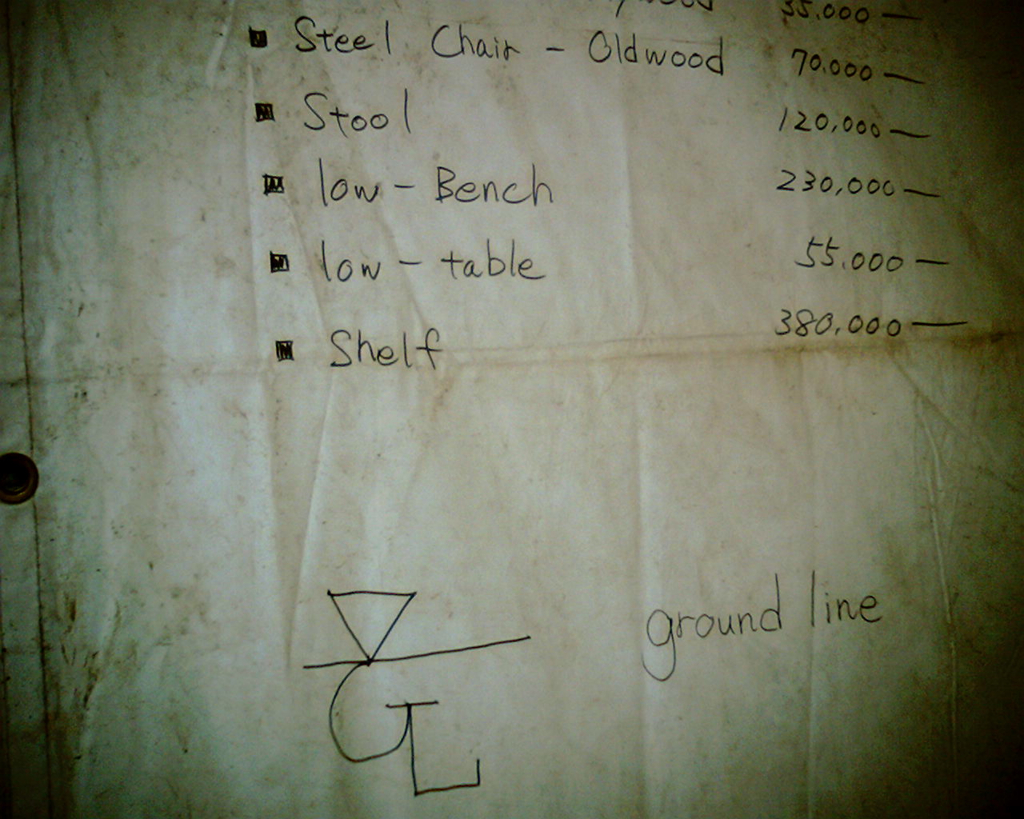 35.000 —
■ Steel Chair - Oldwood 70.000 —
■ Stool 120,000 —
■ low - Bench 230,000 —
■ low - table 55.000 —
■ Shelf 380,000 —
ground line
GL